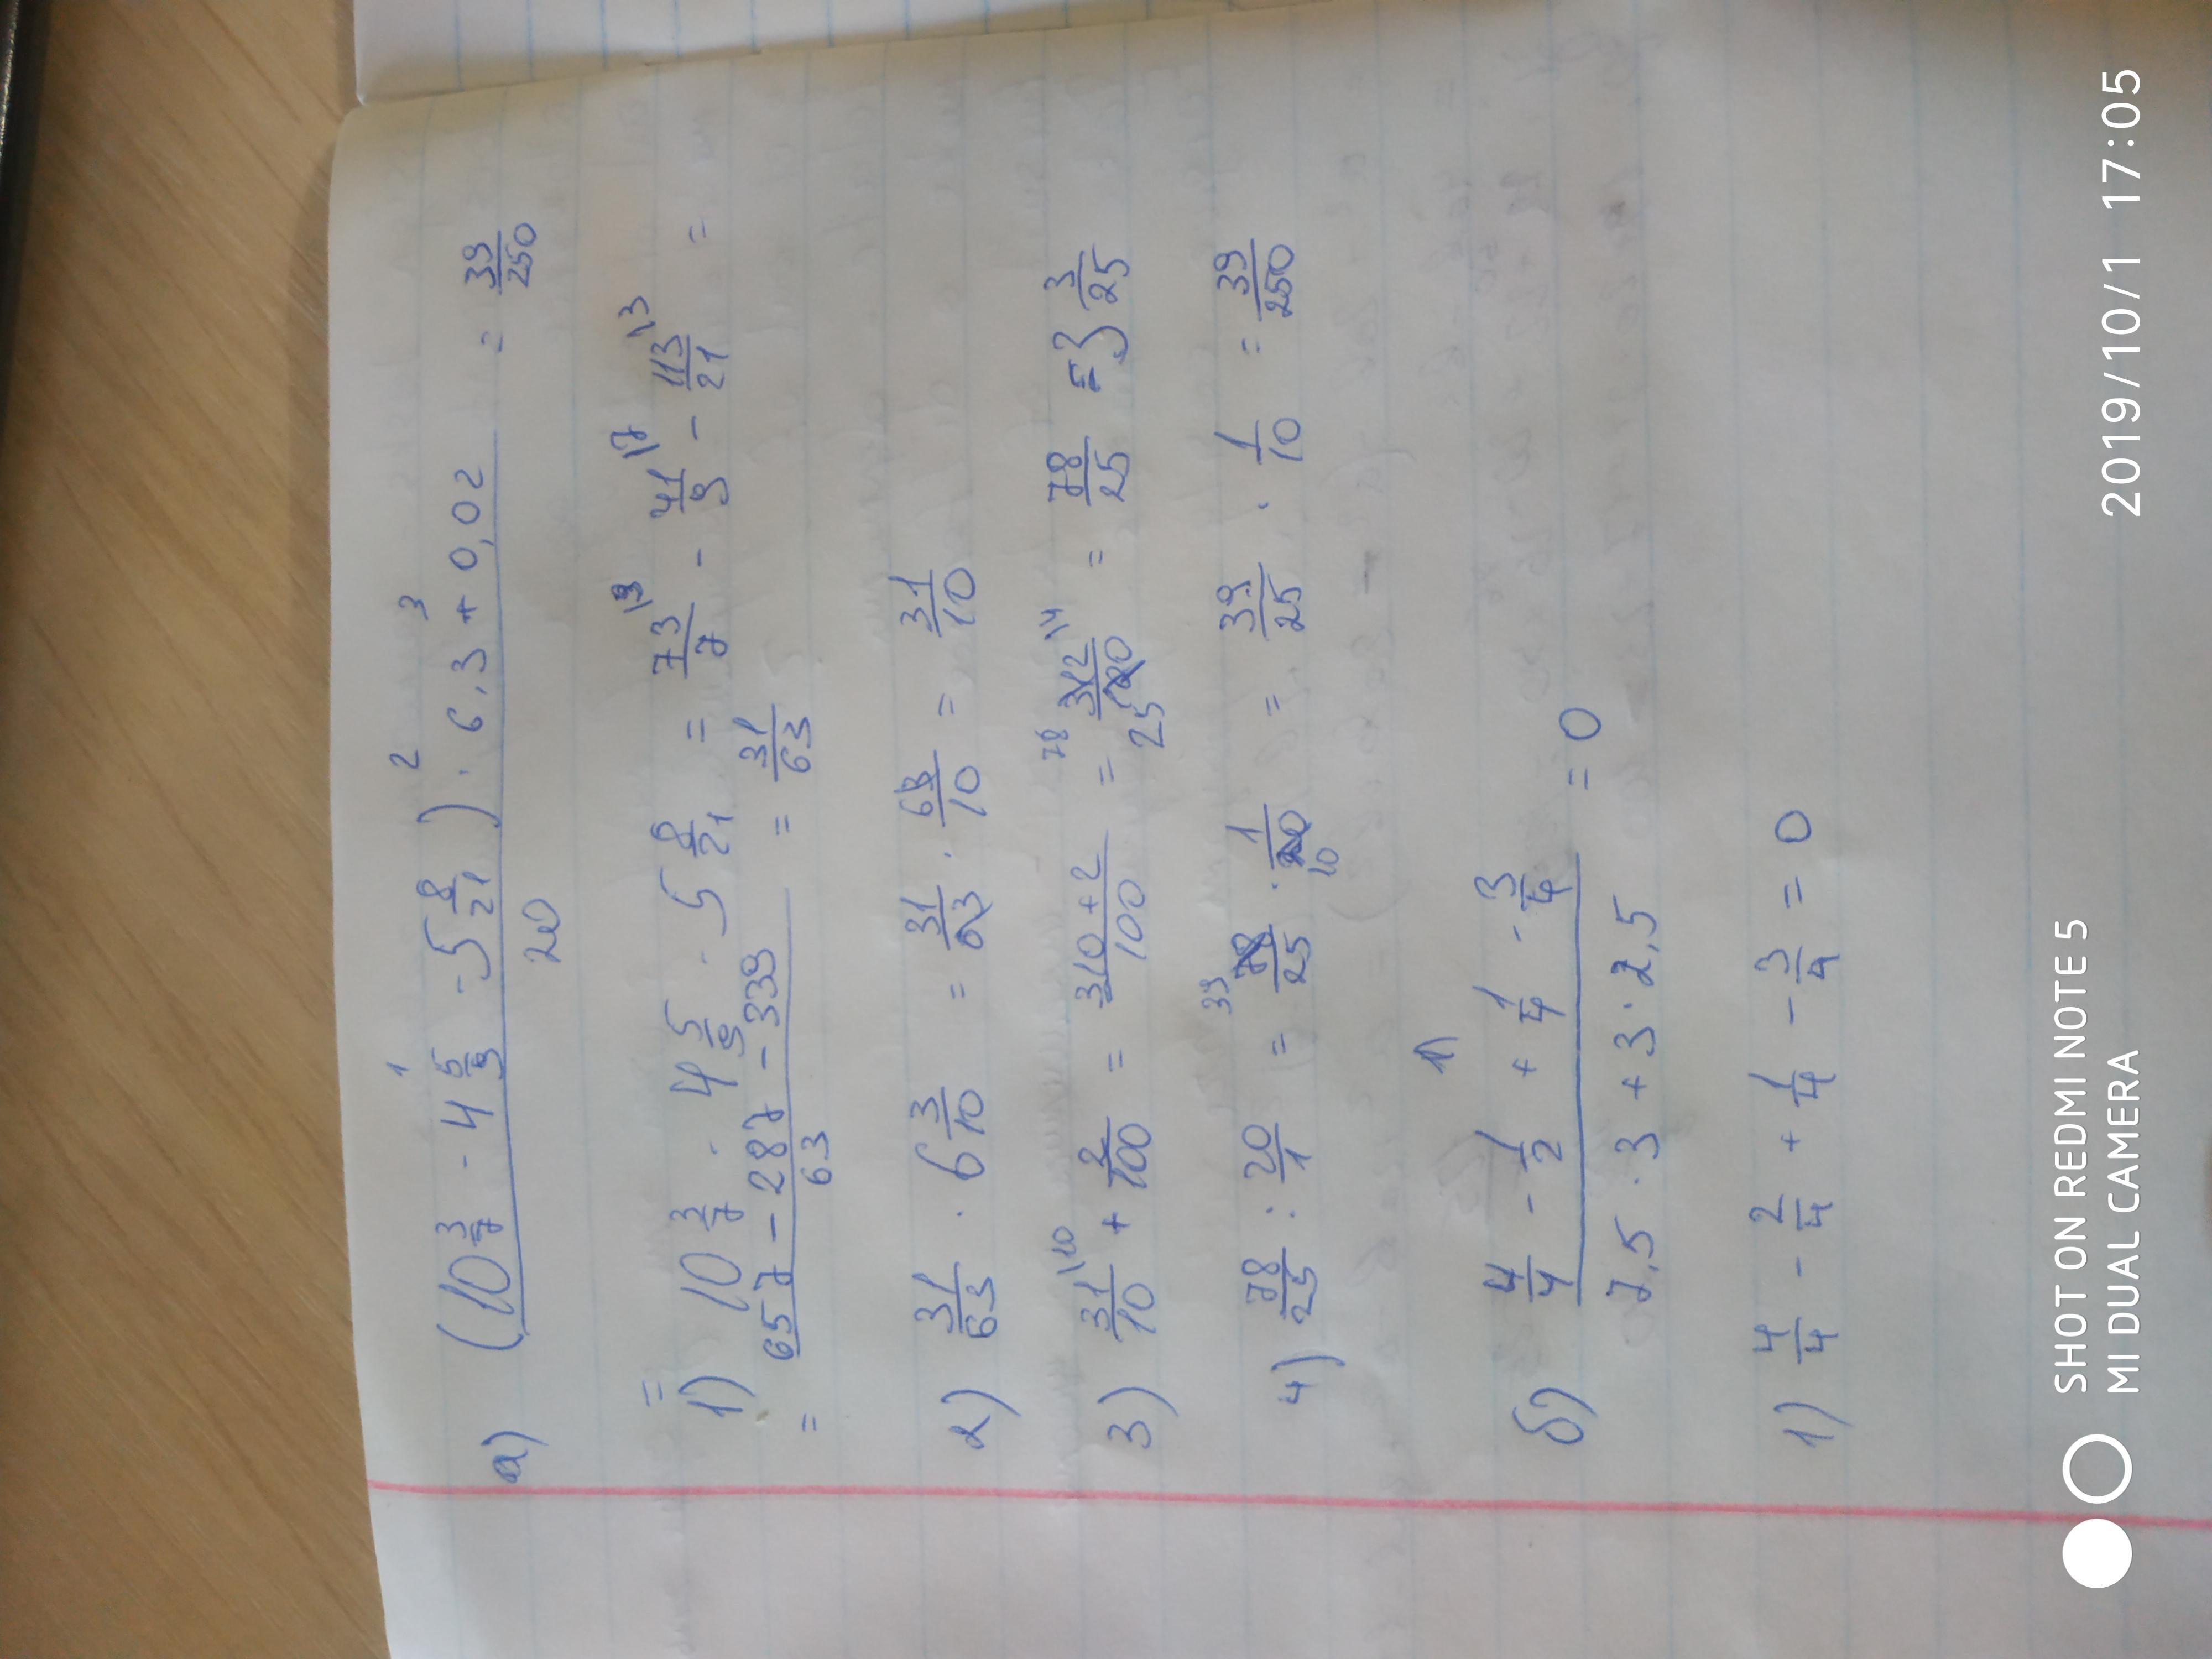 а) (10 3/7 - 4 5/9 - 5 8/21) · 6,3 + 0,02 / 20 = 39/250
1 2 3
=
1) 10 3/7 - 4 5/9 - 5 8/21 = 73/7 \9 - 41/9 \7 - 113/21 \3 =
= 657 - 287 - 339 / 63 = 31/63
2) 31/63 · 6 3/10 = 31/63 · 63/10 = 31/10
3) 31/10 \10 + 2/100 = 310 + 2 / 100 = 78 312/100 25 \4 = 78/25 = 3 3/25
4) 78/25 : 20/1 = 39 78/25 · 1/20 10 = 39/25 · 1/10 = 39/250
1)
б) 4/4 - 1/2 + 1/4 - 3/4 / 7,5 · 3 + 3 · 2,5 = 0
1) 4/4 - 2/4 + 1/4 - 3/4 = 0
SHOT ON REDMI NOTE 5
MI DUAL CAMERA
2019/10/1 17:05